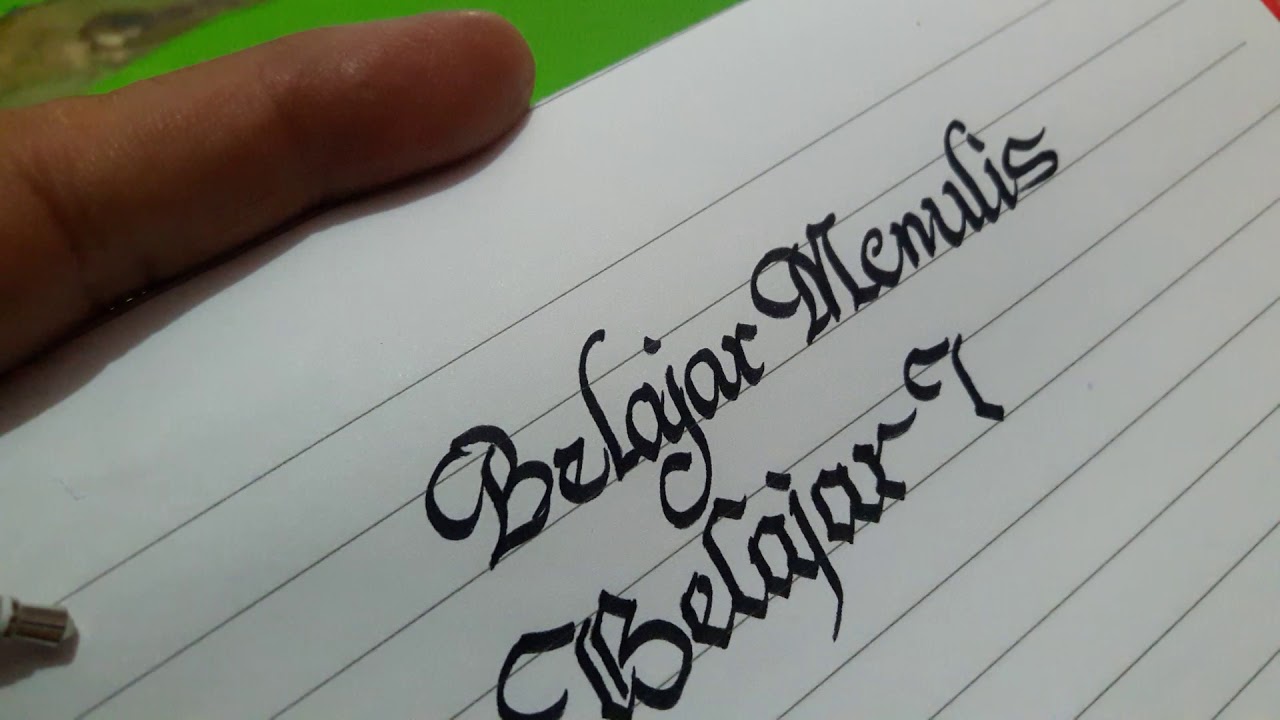 Belajar Menulis
Belajar